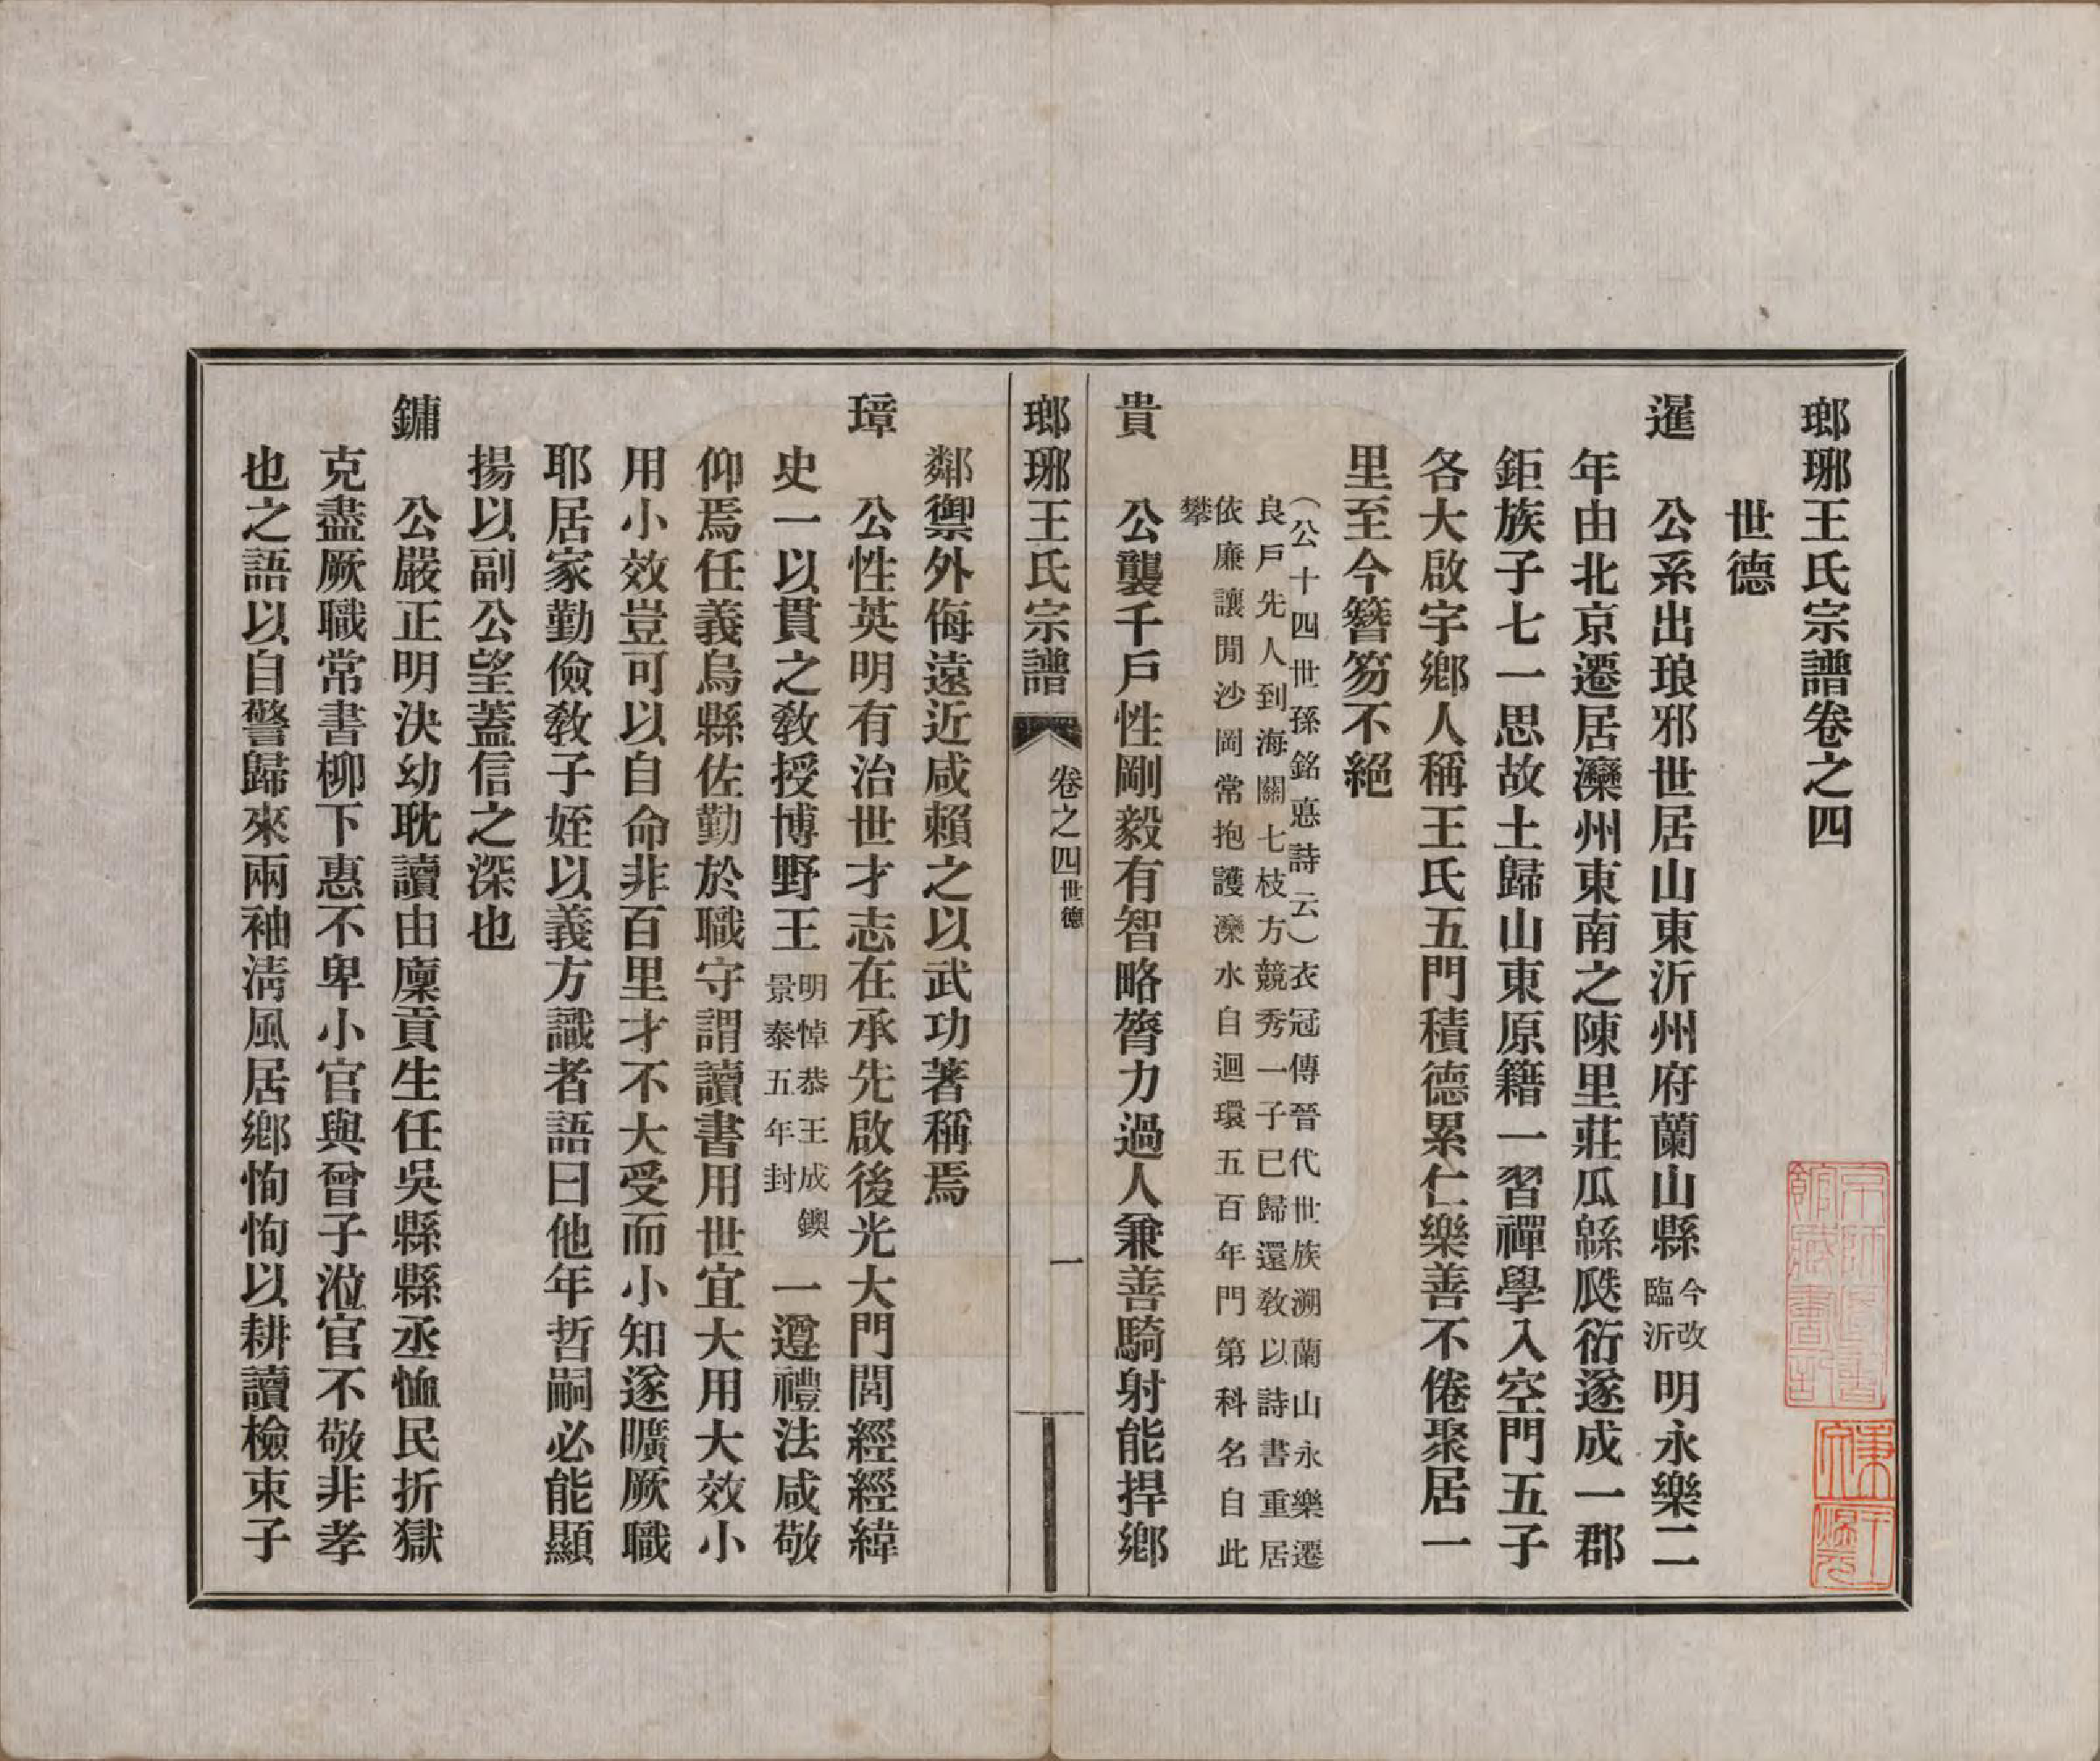 瑯琊王氏宗譜卷之四
世德
暹　公系出琅邪世居山東沂州府蘭山縣今改臨沂明永樂二
年由北京遷居灤州東南之陳里莊瓜緜瓞衍遂成一郡
鉅族子七一思故土歸山東原籍一習禪學入空門五子
各大啟宇鄉人稱王氏五門積德累仁樂善不倦聚居一
里至今簪笏不絕
（公十四世孫銘悳詩云）衣冠傳晉代世族溯蘭山永樂遷
良戶先人到海關七枝方競秀一子已歸還敎以詩書重居
依廉讓閒沙岡常抱護灤水自迴環五百年門第科名自此
攀
貴　公襲千戶性剛毅有智略膂力過人兼善騎射能捍鄉
瑯琊王氏宗譜　卷之四世德　一
鄰禦外侮遠近咸賴之以武功著稱焉
璋　公性英明有治世才志在承先啟後光大門閭經經緯
史一以貫之敎授博野王明悼恭王成鐭景泰五年封一遵禮法咸敬
仰焉任義烏縣佐勤於職守謂讀書用世宜大用大效小
用小效豈可以自命非百里才不大受而小知遂曠厥職
耶居家勤儉敎子姪以義方識者語曰他年哲嗣必能顯
揚以副公望蓋信之深也
鏞　公嚴正明決幼耽讀由廩貢生任吳縣縣丞恤民折獄
克盡厥職常書柳下惠不卑小官與曾子涖官不敬非孝
也之語以自警歸來兩袖淸風居鄉恂恂以耕讀檢束子